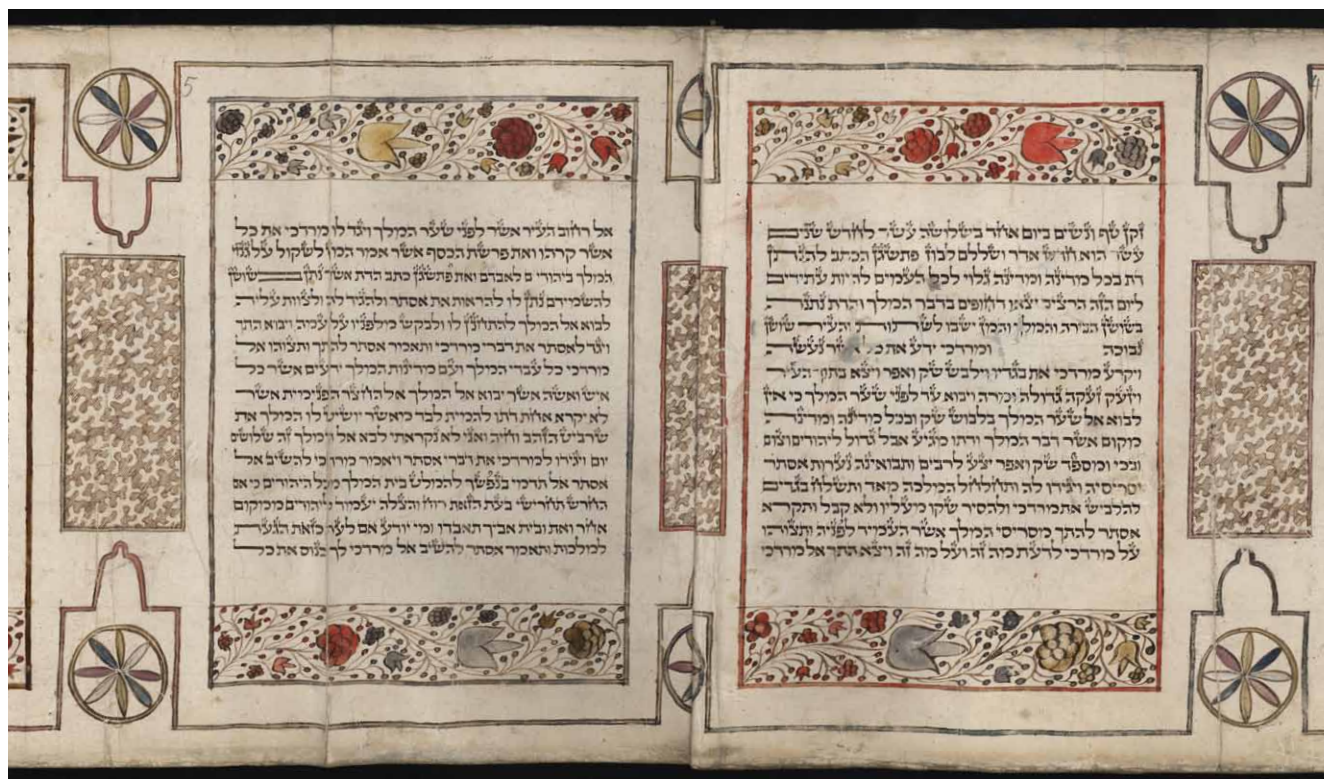 4
זקן טף ונשים ביום אחד בשלושה עשר לחדש שנים
עשר הוא חדש אדר ושללם לבוז פתשגן הכתב להנתן
דת בכל מדינה ומדינה גלוי לכל העמים להיות עתידים
ליום הזה הרצים יצאו דחופים בדבר המלך והדת נתנה
בשושן הבירה והמלך והמן ישבו לשתות והעיר שושן
נבוכה ומרדכי ידע את כל אשר נעשה
ויקרע מרדכי את בגדיו וילבש שק ואפר ויצא בתוך העיר
ויזעק זעקה גדולה ומרה ויבוא עד לפני שער המלך כי אין
לבוא אל שער המלך בלבוש שק ובכל מדינה ומדינה
מקום אשר דבר המלך ודתו מגיע אבל גדול ליהודים וצום
ובכי ומספד שק ואפר יצע לרבים ותבואינה נערות אסתר
וסריסיה ויגידו לה ותתחלחל המלכה מאד ותשלח בגדים
להלביש את מרדכי ולהסיר שקו מעליו ולא קבל ותקרא
אסתר להתך מסריסי המלך אשר העמיד לפניה ותצוהו
על מרדכי לדעת מה זה ועל מה זה ויצא התך אל מרדכי
5
אל רחוב העיר אשר לפני שער המלך ויגד לו מרדכי את כל
אשר קרהו ואת פרשת הכסף אשר אמר המן לשקול על גנזי
המלך ביהודים לאבדם ואת פתשגן כתב הדת אשר נתן בשושן
להשמידם נתן לו להראות את אסתר ולהגיד לה ולצוות עליה
לבוא אל המלך להתחנן לו ולבקש מלפניו על עמה ויבוא התך
ויגד לאסתר את דברי מרדכי ותאמר אסתר להתך ותצוהו אל
מרדכי כל עבדי המלך ועם מדינות המלך ידעים אשר כל
איש ואשה אשר יבוא אל המלך אל החצר הפנימית אשר
לא יקרא אחת דתו להמית לבד מאשר יושיט לו המלך את
שרביט הזהב וחיה ואני לא נקראתי לבא אל המלך זה שלושים
יום ויגידו למרדכי את דברי אסתר ויאמר מרדכי להשיב אל
אסתר אל תדמי בנפשך להמלט בית המלך מכל היהודים כי אם
החרש תחרישי בעת הזאת רוח והצלה יעמוד ליהודים ממקום
אחר ואת ובית אביך תאבדו ומי יודע אם לעת כזאת הגעת
למלכות ותאמר אסתר להשיב אל מרדכי לך כנוס את כל